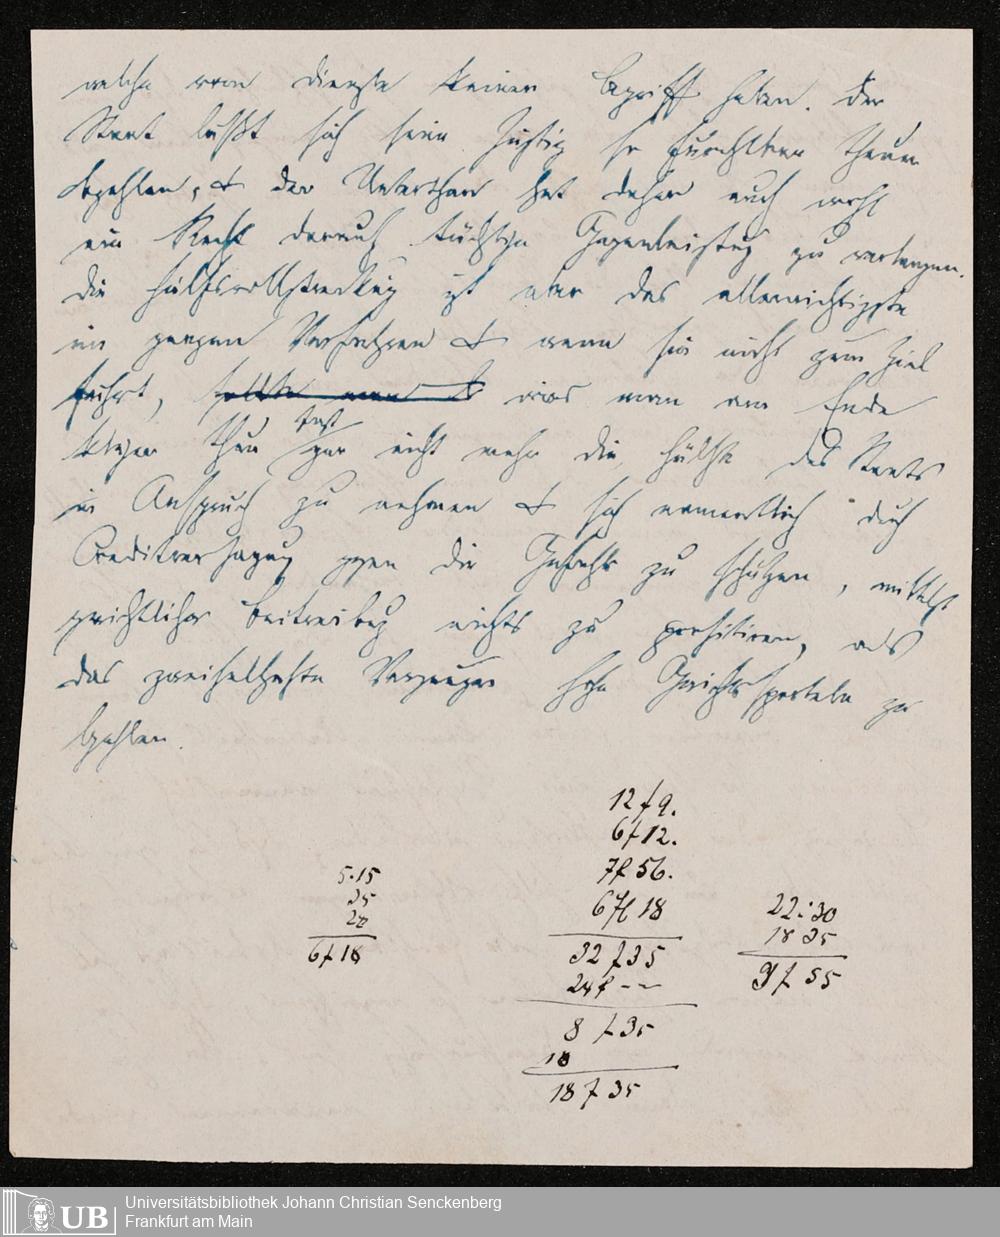 welche vom Dienste keinen Begriff haben. Der
Staat läßt sich seine Justiz so furchtbar theuer
bezahlen, & der Unterthan hat daher auch wohl
ein Recht darauf tüchtige Gegenleistung zu verlangen.
Die Hülfsvollstreckung ist aber das allerwichtigste
im ganzen Verfahren & wenn sie nicht zum Ziel
führt, sollte man was man am Ende
klüger thun fast gar nicht mehr die Hülfe des Staats
in Anspruch zu nehmen & sich namentlich durch
Creditversagung gegen die Gefahr zu schützen, mittelst
gerichtlicher Beitreibung nichts zu profitiren, als
das zweifelhafte Vergnügen hohe Gerichtssporteln zu
bezahlen.
12 f 9.
6 f 12.
7 f 56.
6 f 18
32 f 35
24 f – –
8 f 35
10
18 f 35
5.15
35
28
6 f 18
22:30
18 35
9 f 55
Universitätsbibliothek Johann Christian Senckenberg
Frankfurt am Main
UB